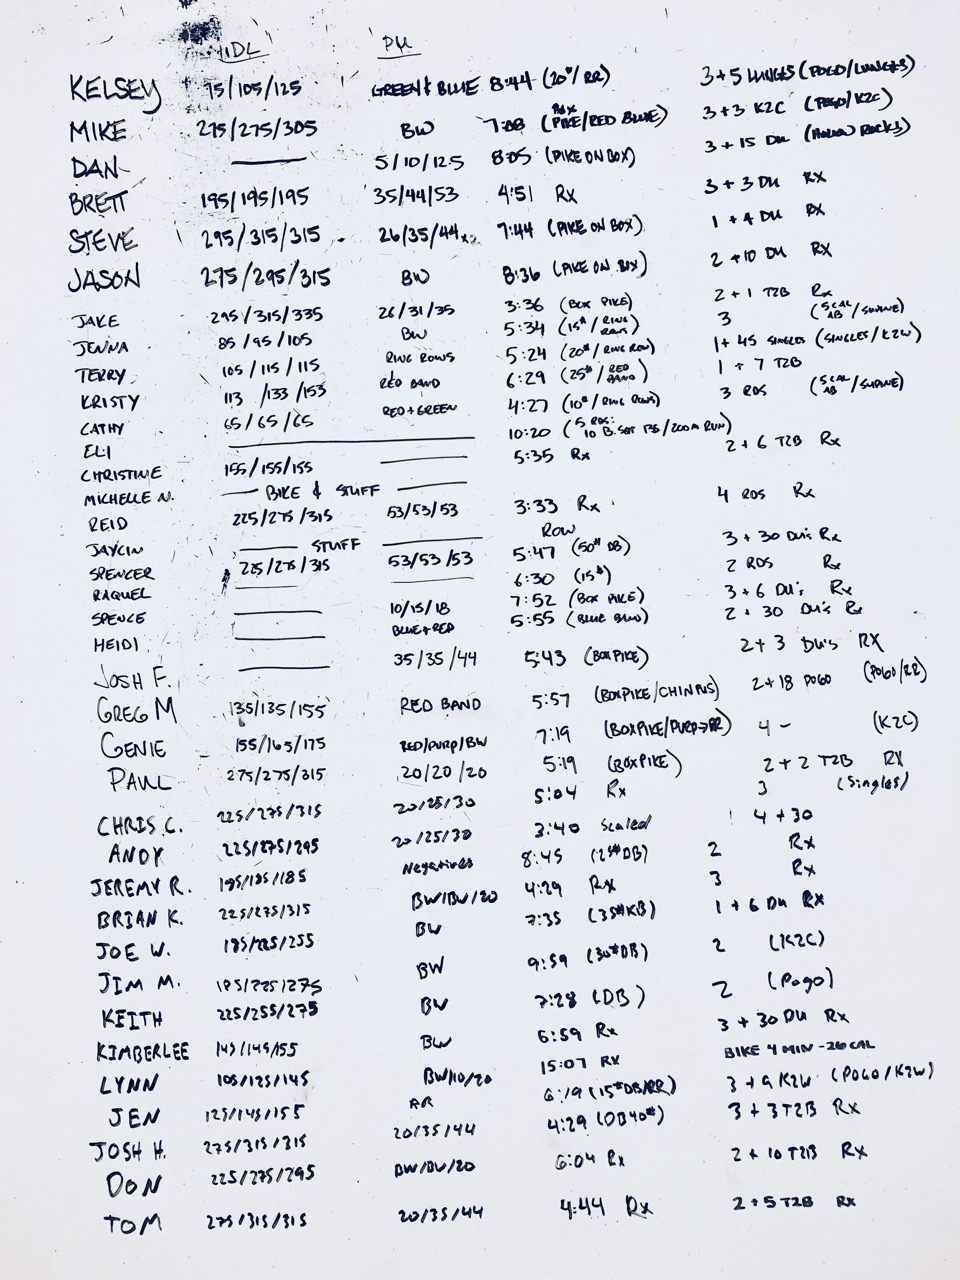 DL PU
KELSEY 95/105/125 GREEN & BLUE 8:44 (20#/RR) 3+5 LUNGES (POGO/LUNGES)
MIKE 275/275/305 BW (PIKE/RED BLUE) 3+3 K2C (POGO/K2C)
DAN 5/10/12.5 8:05 (PIKE ON BOX) 3+15 DU (HOLLOW ROCKS)
BRETT 195/195/195 35/44/53 4:51 Rx 3+3 DU RX
STEVE 295/315/315 26/35/44 7:44 (PIKE ON BOX) 1+4 DU RX
JASON 275/295/315 BW 8:36 (PIKE ON BOX) 2+10 DU RX
JAKE 295/315/335 26/31/35 3:36 (BOX PIKE) 2+1 T2B Rx
JENNA 85/95/105 BW 5:34 (15#/RING ROWS) 3 (5 CAL AB/SUPINE)
TERRY 105/115/115 RING ROWS 5:24 (20#/RING ROW) 1+45 SINGLES (SINGLES/K2W)
KRISTY 113/133/153 RED BAND 6:29 (25#/RED BAND) 1+7 T2B
CATHY 65/65/65 RED+GREEN 4:27 (10#/RING ROWS) 3 RDS (5 CAL AB/SUPINE)
ELI 10:20 (5 RDS: 10 B. /200M RUN)
CHRISTINE 155/155/155 5:35 Rx 2+6 T2B Rx
MICHELLE N. BIKE & STUFF
REID 225/275/315 53/53/53 3:33 Rx 4 RDS Rx
JAYCIN STUFF ROW
SPENCER 225/275/315 53/53/53 5:47 (50# DB) 3+30 DU's Rx
RAQUEL 6:30 (15#) 2 RDS Rx
SPENCE 10/15/18 7:52 (BOX PIKE) 3+6 DU's Rx
HEIDI BLUE+RED 5:55 (BLUE BAND) 2+30 DU's Rx
JOSH F. 35/35/44 5:43 (BOX PIKE) 2+3 DU's RX
GREG M 135/135/155 RED BAND 5:57 (BOX PIKE/CHIN PUS) 2+18 POGO (POGO/RR)
GENIE 155/165/175 RED/PURP/BW 7:19 (BOX PIKE/PURP→RR) 4 - (K2C)
PAUL 275/275/315 20/20/20 5:19 (BOX PIKE) 2+2 T2B RX
CHRIS C. 225/275/315 20/25/30 5:04 Rx 3 (Singles)
ANDY 225/275/295 20/25/30 3:40 Scaled 4+30
JEREMY R. 185/185/185 Negatives 8:45 (25#DB) 2 Rx
BRIAN K. 225/275/315 BW/BW/20 4:29 Rx 3 Rx
JOE W. 195/225/255 BW 7:35 (35#KB) 1+6 DU RX
JIM M. 195/225/275 BW 9:59 (30#DB) 2 (K2C)
KEITH 225/255/275 BW 7:28 (DB) 2 (Pogo)
KIMBERLEE 145/145/155 BW 6:59 Rx 3+30 DU Rx
LYNN 105/125/145 BW/10/20 15:07 RX BIKE 4 MIN - 26 CAL
JEN 125/145/155 6:19 (15#DB/RR) 3+9 K2W (POGO/K2W)
JOSH H. 275/315/315 20/35/44 4:29 (DB 40#) 3+3 T2B Rx
DON 225/275/295 BW/BW/20 6:04 Rx 2+10 T2B Rx
TOM 275/315/315 20/35/44 4:44 Rx 2+5 T2B Rx